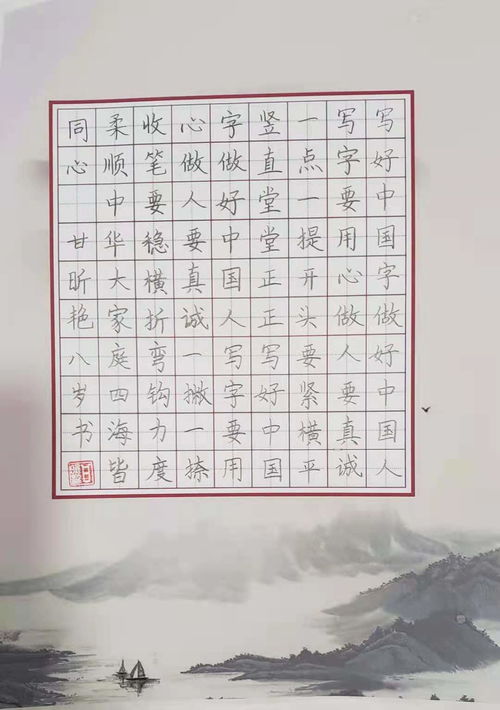 写好中国字做好中国人
写字要用心做人要真诚
一点一提开头要紧横平
竖直堂堂正正写好中国
字做好中国人写字要用
心做人要真诚一撇一捺
收笔要稳横折弯钩力度
柔顺中华大家庭四海皆
同心 甘昕艳八岁书